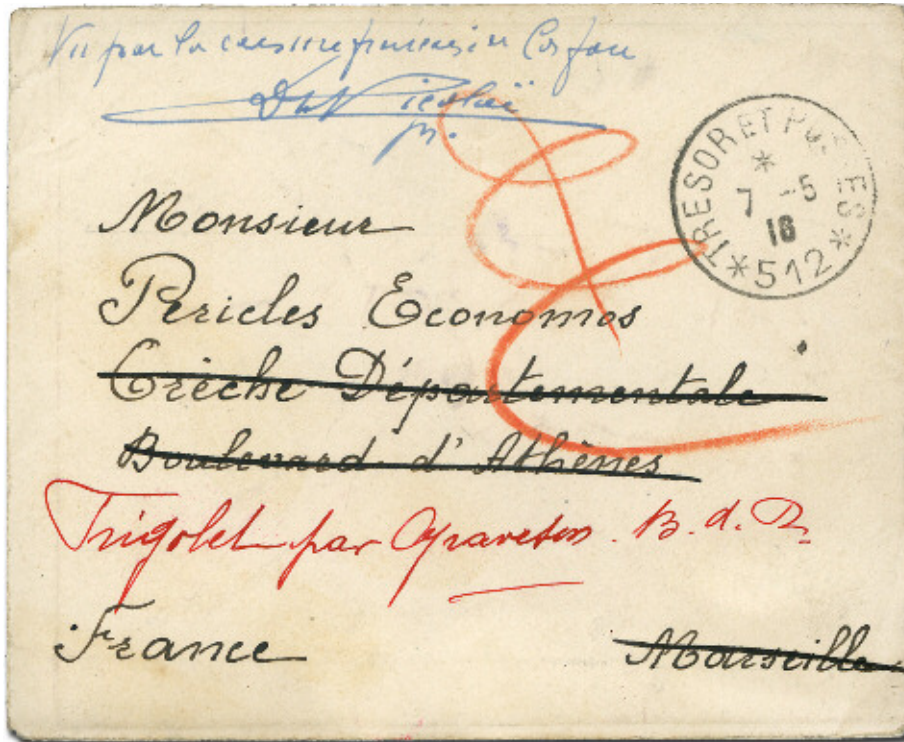 Vu par la censure française Corfou
TRESOR ET POSTES
7 -5
16
*512*
Monsieur
Pericles Economos
Crèche Départementale
Boulevard d'Athènes
Frigolet par Graveson. B. d. R.
France
Marseille